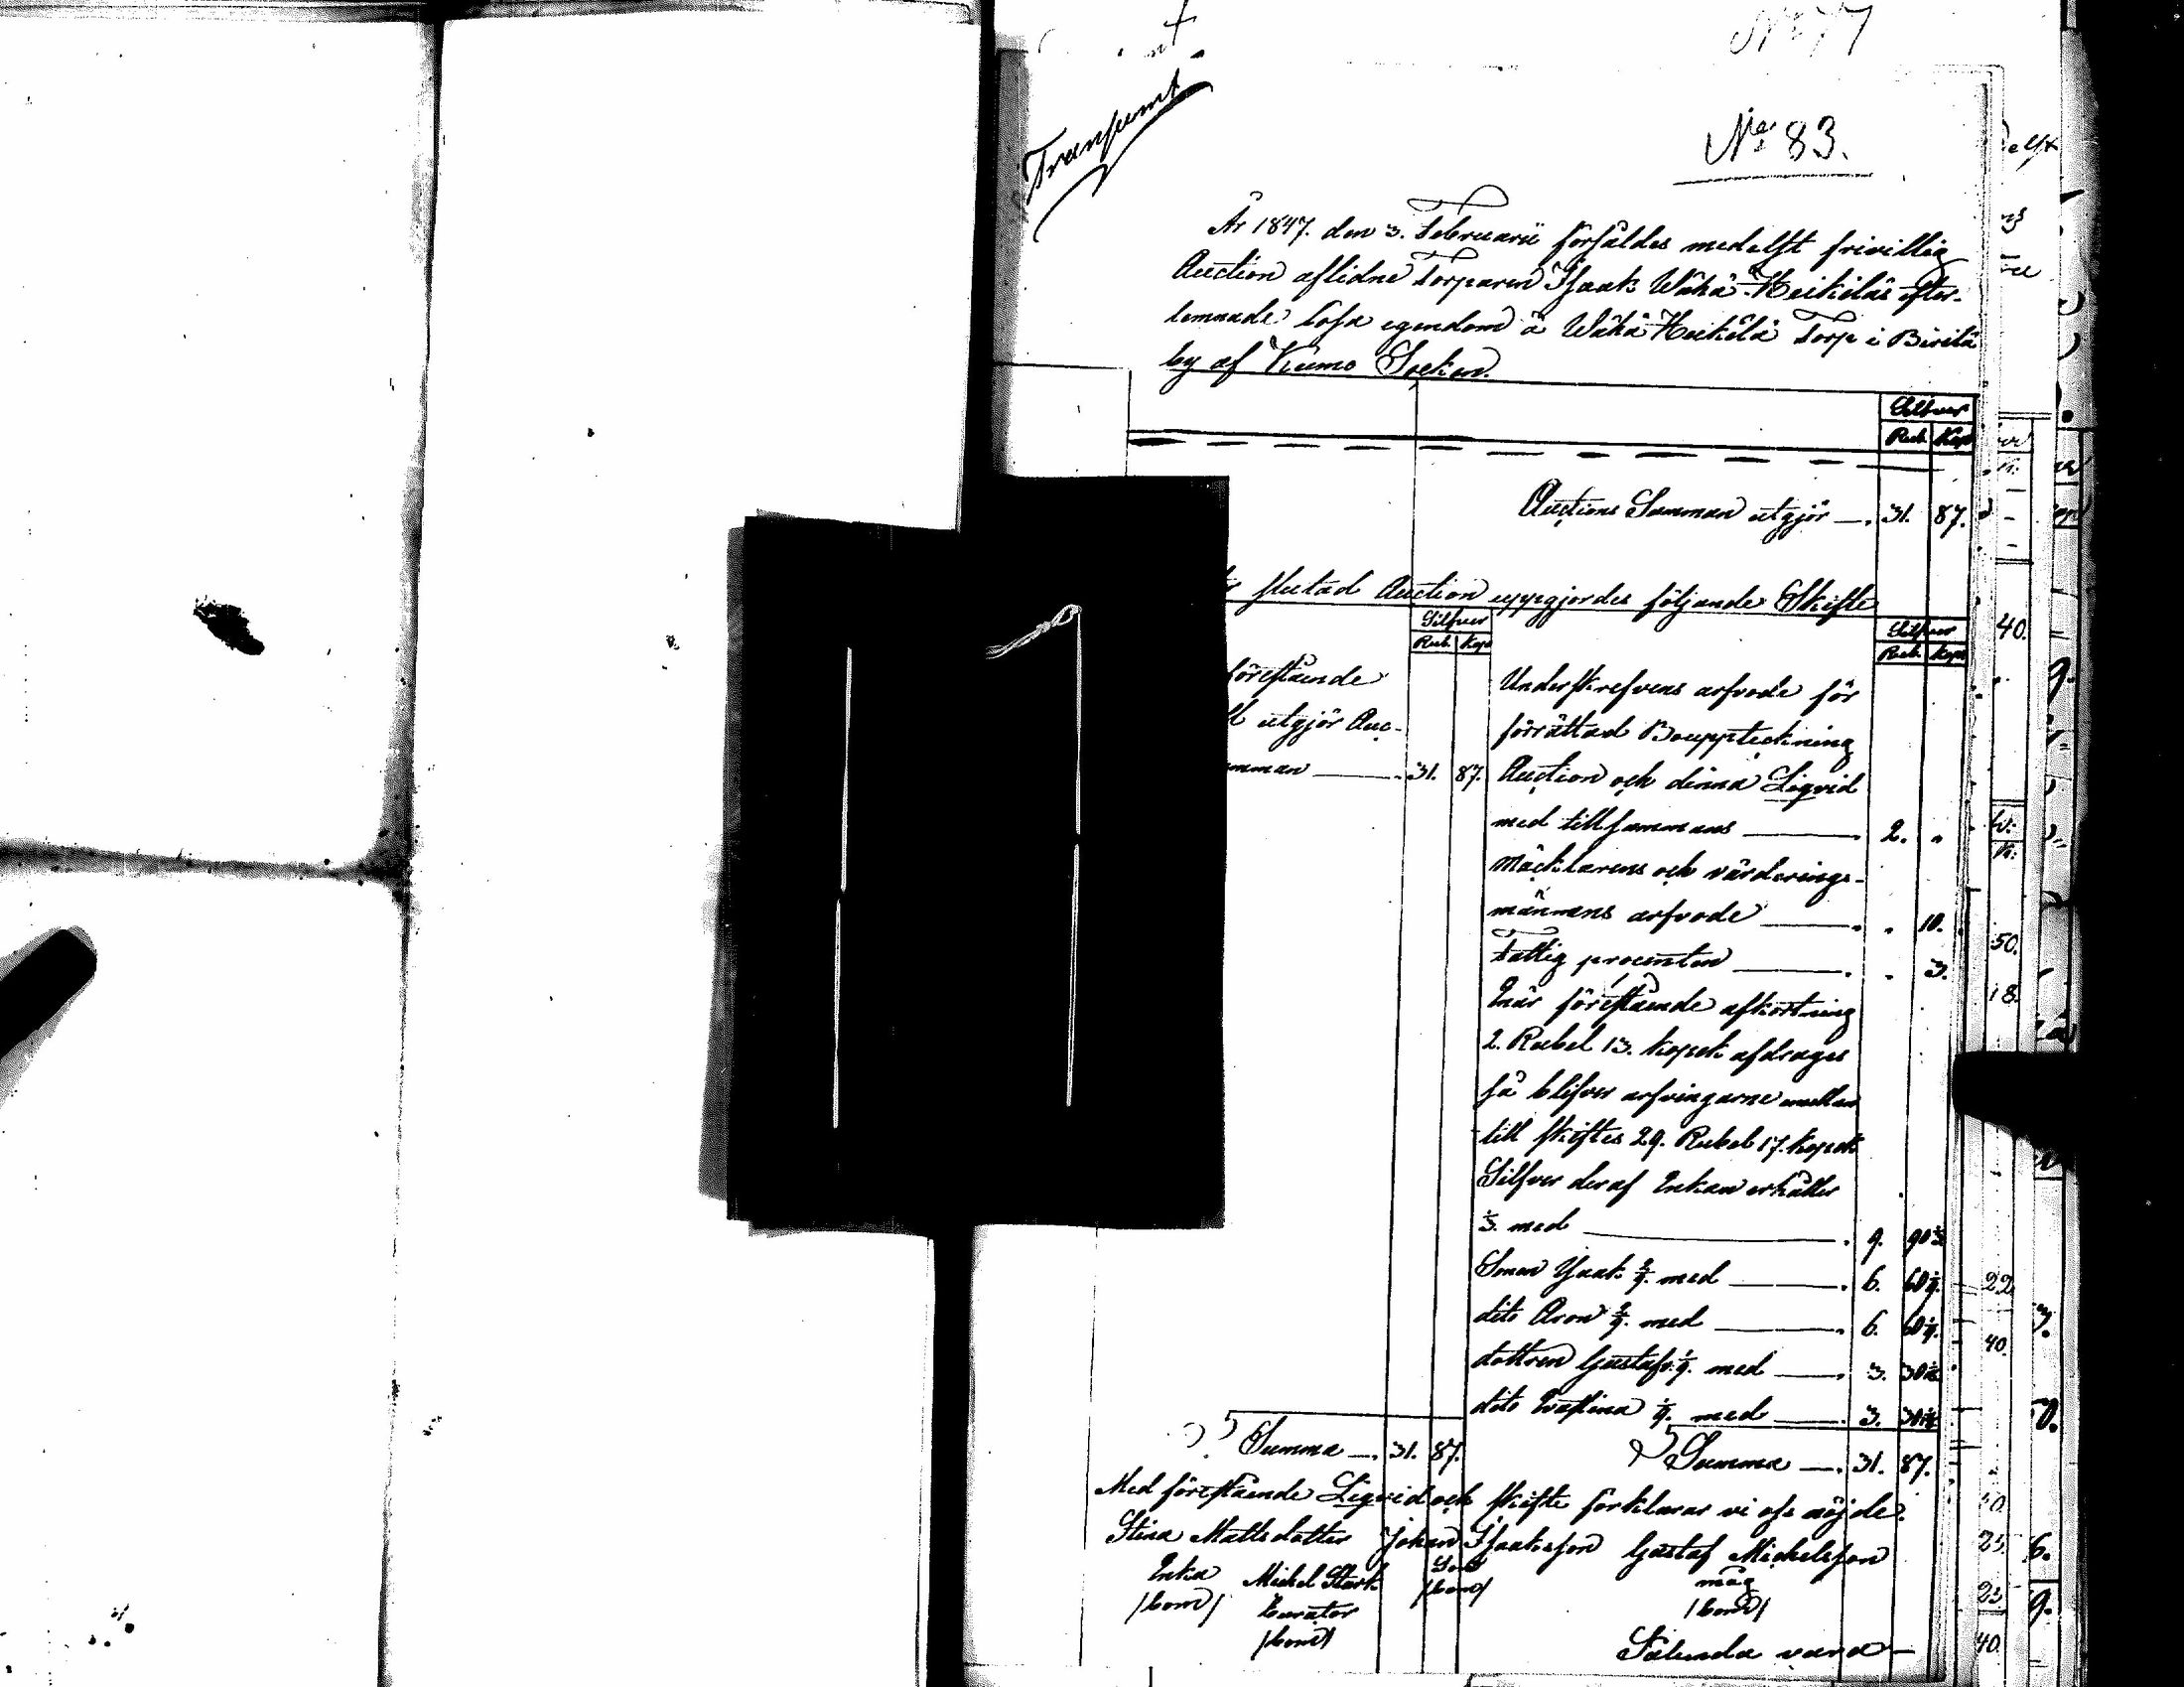 No 77
Transumt
No 83.
År 1847. den 3. Februarii försåldes medelst frivillig
Auction aflidne Torparen Isaak Wähä-Heikiläs efter-
lemnade lösa egendom å Wähä Heikilä Torp i Birilä
by af Kumo Socken.
Silfver
Rub. Kop
Auctions Summan utgjör —. 31. 87.
slutad Auction uppgjordes följande Skifte
Silfver Silfver
Rub. Kop Rub. Kop
förestående
utgjör Auc-
mman —. 31. 87.
Underskrefvens arfvode för
förrättad Bouppteckning
Auction och denna Liqvid
med tillsammans —. 2. "
Mäcklarens och värderings-
männens arfvode —. " 10.
Fattig procenten —. " 3.
När förestående afkortning
2. Rubel 13. kopek afdrages
så blifver arfvingarne emellan
till skiftes 29. Rubel 17. kopek
Silfver deraf Enkan erhåller
1/3. med —. 9. 90 1/3
Sonen Isaak 2/9. med —. 6. 60 1/9.
dito Aron 2/9. med —. 6. 60 1/9.
dottren Gustafv. 1/9. med —. 3. 30
dito Evastina 1/9. med —. 3. 30
Summa —. 31. 87. Summa —. 31. 87.
Med förestående Liqvid och skifte förklarar vi oss nöjde.
Stina Mattsdotter Johan Isaaksson Gustaf Michelsson
Enka Michel Stark Son måg
/bom/ Curator /bom/ /bom/
/bom/
Sålunda vara —